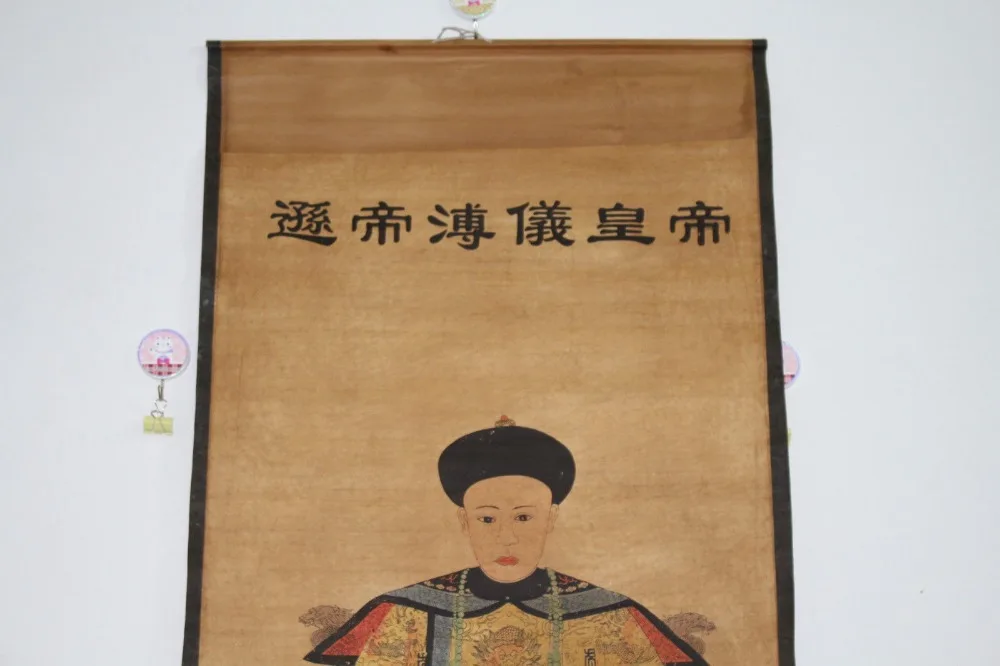 遜帝溥儀皇帝